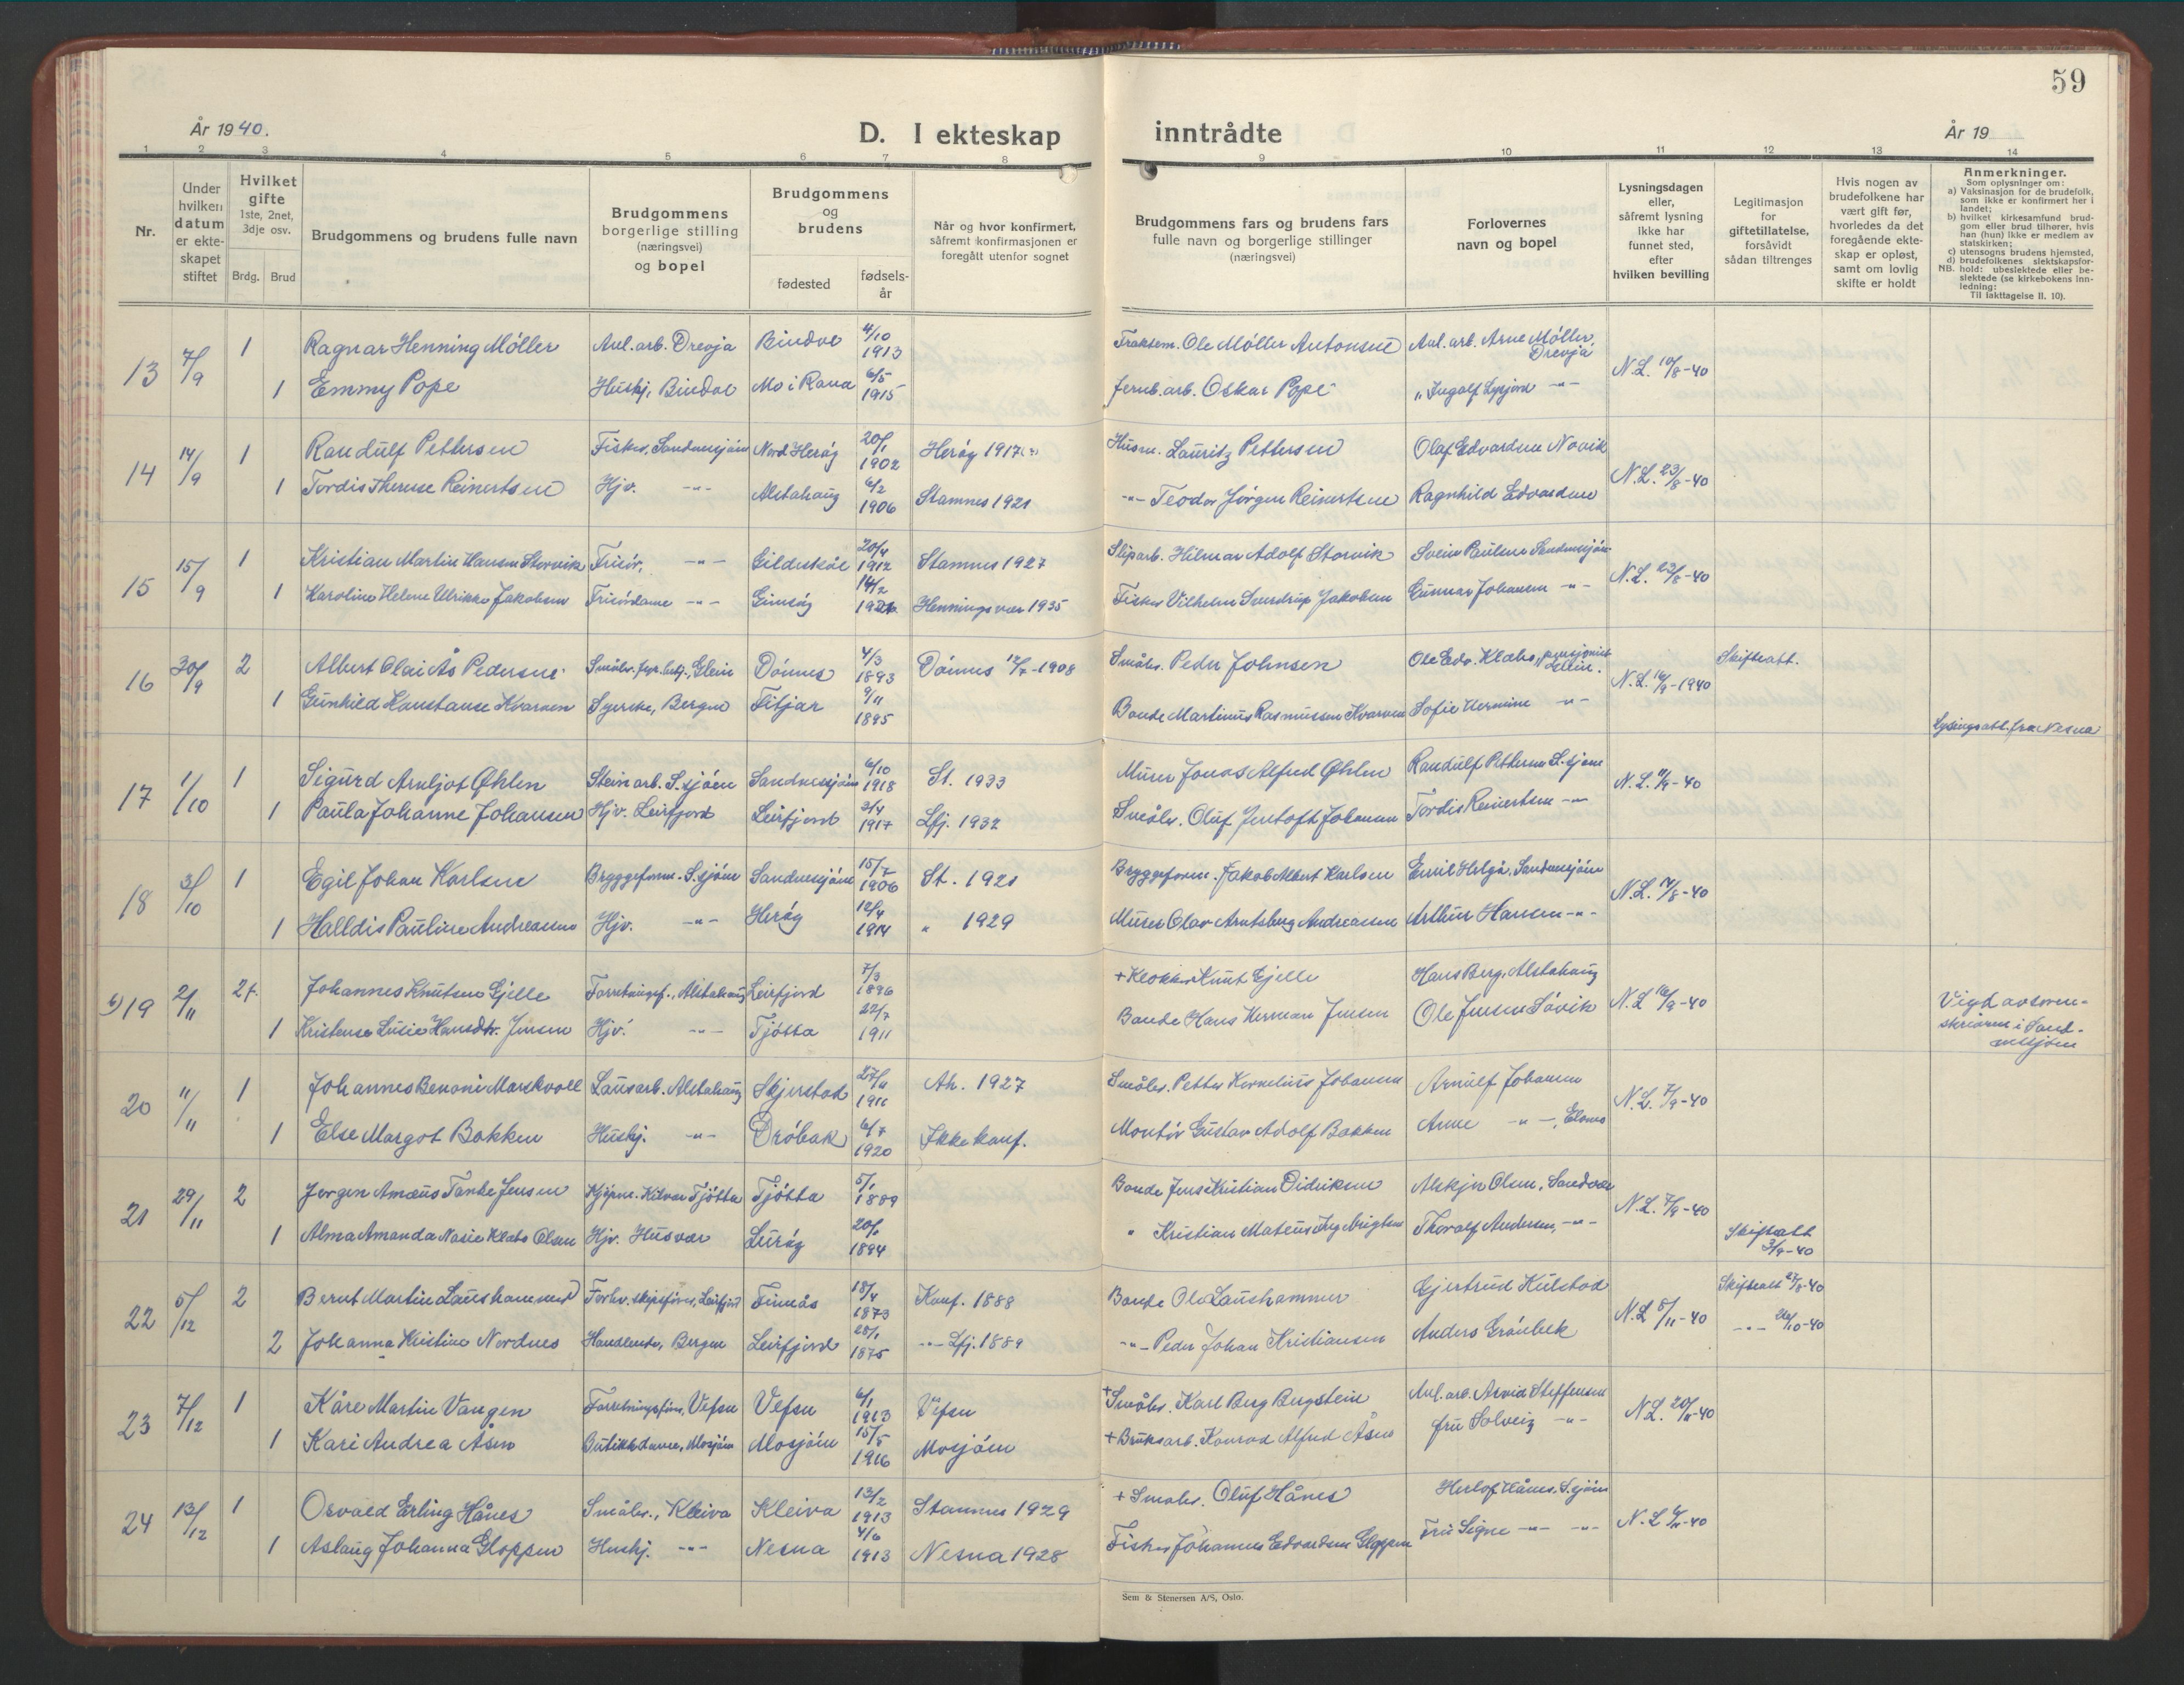 59
År 1940.
D. I ekteskap inntrådte
År 19
1 2 3 4 5 6 7 8 9 10 11 12 13 14
Nr.
Under hvilken datum er ekteskapet stiftet
Hvilket gifte 1ste, 2net, 3dje osv.
Brdg. Brud
Brudgommens og brudens fulle navn
Brudgommens borgerlige stilling (næringsvei) og bopel
Brudgommens og brudens
fødested
fødselsår
Når og hvor konfirmert, såfremt konfirmasjonen er foregått utenfor sognet
Brudgommens fars og brudens fars fulle navn og borgerlige stillinger (næringsvei)
Forlovernes navn og bopel
Lysningsdagen eller, såfremt lysning ikke har funnet sted, efter hvilken bevilling
Legitimasjon for giftetillatelse, forsåvidt sådan tiltrenges
Hvis nogen av brudefolkene har vært gift før, hvorledes da det foregående ekteskap er opløst, samt om lovlig skifte er holdt
Anmerkninger.
Som oplysninger om:
a) Vaksinasjon for de brudefolk, som ikke er konfirmert her i landet;
b) hvilket kirkesamfund brudgom eller brud tilhører, hvis han (hun) ikke er medlem av statskirken;
c) utensogns brudens hjemsted,
d) brudefolkenes slektskapsforhold: ubeslektede eller beslektede (se kirkebokens innledning:
NB.
Til iakttagelse II. 10).
13 7/9 1 Ragnar Henning Møller Anl.arb. Drevja Bindal 4/10 1913 Ole Møller Antonsen Anl. arb. Arne Møller, Drevja N.L. 10/8-40
1 Emmy Pope Hushj. Bindal Mo i Rana 6/5 1915 Jernb.arb. Oskar Pope „ Ingolf -"-
14 14/9 1 Randulf Pettersen Fisker, Sandnessjøen Nord Herøy 20/1 1902 Herøy 1917 Husm. Lauritz Pettersen Olaf Edvardsen Novik N.L. 23/8-40
1 Tordis Therese Reinertsen Hjv. -"- Alstahaug 6/2 1906 Stamnes 1921 -"- Teodor Jørgen Reinertsen Ragnhild Edvardsen
15 15/9 1 Kristian Martin Hansen Storvik Frisør, -"- Gildeskål 20/4 1912 Stamnes 1927 Sliparb. Hilmar Adolf Storvik Svein Paulsen Sandnessjøen N.L. 23/8-40
1 Karoline Helene Ulrikke Jakobsen Frisørdame -"- Gimsøy 14/2 Henningsvær 1935 Fisker Vilhelm Sverdrup Jakobsen Gunnar Johansen -"-
16 30/9 2 Albert Olai Ås Pedersen Glein Dønnes 4/3 1893 Dønnes 1908 Småbr. Peder Johnsen Ole Edv. Klabo, pensjonist N.L. 16/9-1940 Skifteatt.
1 Gunhild Konstanse Kvarven Syerske, Bergen Fitjar 9/11 1895 Bonde Martinus Rasmussen Kvarven Sofie Hermine -"- Lysingsatt. fra Nesna
17 1/10 1 Sigurd Arnljot Øhlen Steinarb. S.sjøen Sandnessjøen 6/10 1918 St. 1933 Murer Jonas Alfred Øhlen Randulf Pettersen S.sjøen N.L. 11/9-40
1 Paula Johanne Johansen Hjv. Leirfjord Leirfjord 3/4 1917 Lfj. 1932 Småbr. Oluf Jentoft Johansen Tordis Reinertsen -"-
18 3/10 1 Egil Johan Karlsen Bryggeform. S.sjøen Sandnessjøen 15/7 1906 St. 1921 Bryggeform. Jakob Albert Karlsen Emil Helgå, Sandnessjøen N.L. 14/8-40
1 Halldis Pauline Andreassen Hjv. -"- Herøy 12/4 1914 " 1929 Murer Olav Arntsberg Andreassen Arthur Hansen -"-
19 2/11 2 Johannes Knutsen Gjelle Forretningsf., Alstahaug Leirfjord 7/3 1896 + Klokker Knut Gjelle Hans Berg, Alstahaug N.L. 16/9-40 Vigd av sorenskriveren i Sandnessjøen
1 Kristense Lusie Hansdtr. Jensen Hjv. -"- Tjøtta 22/7 1911 Bonde Hans Herman Jensen Ole Jensen Søvik
20 11/11 1 Johannes Benoni Marskvoll Løsarb. Alstahaug Skjerstad 27/11 1911 Ah. 1927 Småbr. Petter Kornelius Johansen Arnulf Johansen N.L. 7/9-40
1 Else Margot Bakken Hushj. -"- Drøbak 6/7 1920 Ikke konf. Montør Gustav Adolf Bakken Anne -"-
21 29/11 2 Jørgen Amæus Tanke Jensen Kjøpm. Tjøtta Tjøtta 5/1 1889 Bonde Jens Kristian Didriksen Olsen, Sandvær N.L. 7/9-40
1 Alma Amanda Klabo Olsen Hjv. Husvær Lurøy 1894 " Kristian Mateus Thoralf Andersen, -"- Skifteatt 3/9-40
22 5/12 2 Bernt Martin Laushammer Forhv. skipsfører, Leirfjord Finnås 18/4 1873 Konf. 1888 Bonde Ole Laushammer Gjertrud Kulstad N.L. 5/11-40 Skifteatt 27/8-40
2 Johanna Kristine Nordnes Handlende, Bergen Leirfjord 28/1 1875 -"- Lfj. 1889 -"- Peder Johan Kristiansen Anders Grønbek -"- 26/10-40
23 7/12 1 Kåre Martin Vangen Forretningsfører, Vefsn Vefsn 6/1 1913 Vefsn + Småbr. Karl Berg Bergstein Anl.arb. Arvid Steffensen N.L. 20/11-40
1 Kari Andrea Åsen Butikkdame, Mosjøen Mosjøen 15/5 1916 Mosjøen + Bruksarb. Konrad Alfred Åsen fru Solveig -"-
24 13/12 1 Osvald Erling Hånes Småbr., Kleiva Kleiva 13/2 1913 Stamnes 1929 + Småbr. Oluf Hånes Herlof Hånes, S.sjøen N.L. -40
1 Aslaug Johanna Gloppen Hushj. -"- Nesna 4/6 1913 Nesna 1928 Fisker Johannes Edvardsen Gloppen Fru Signe -"- -"-
Sem & Stenersen A/S, Oslo.